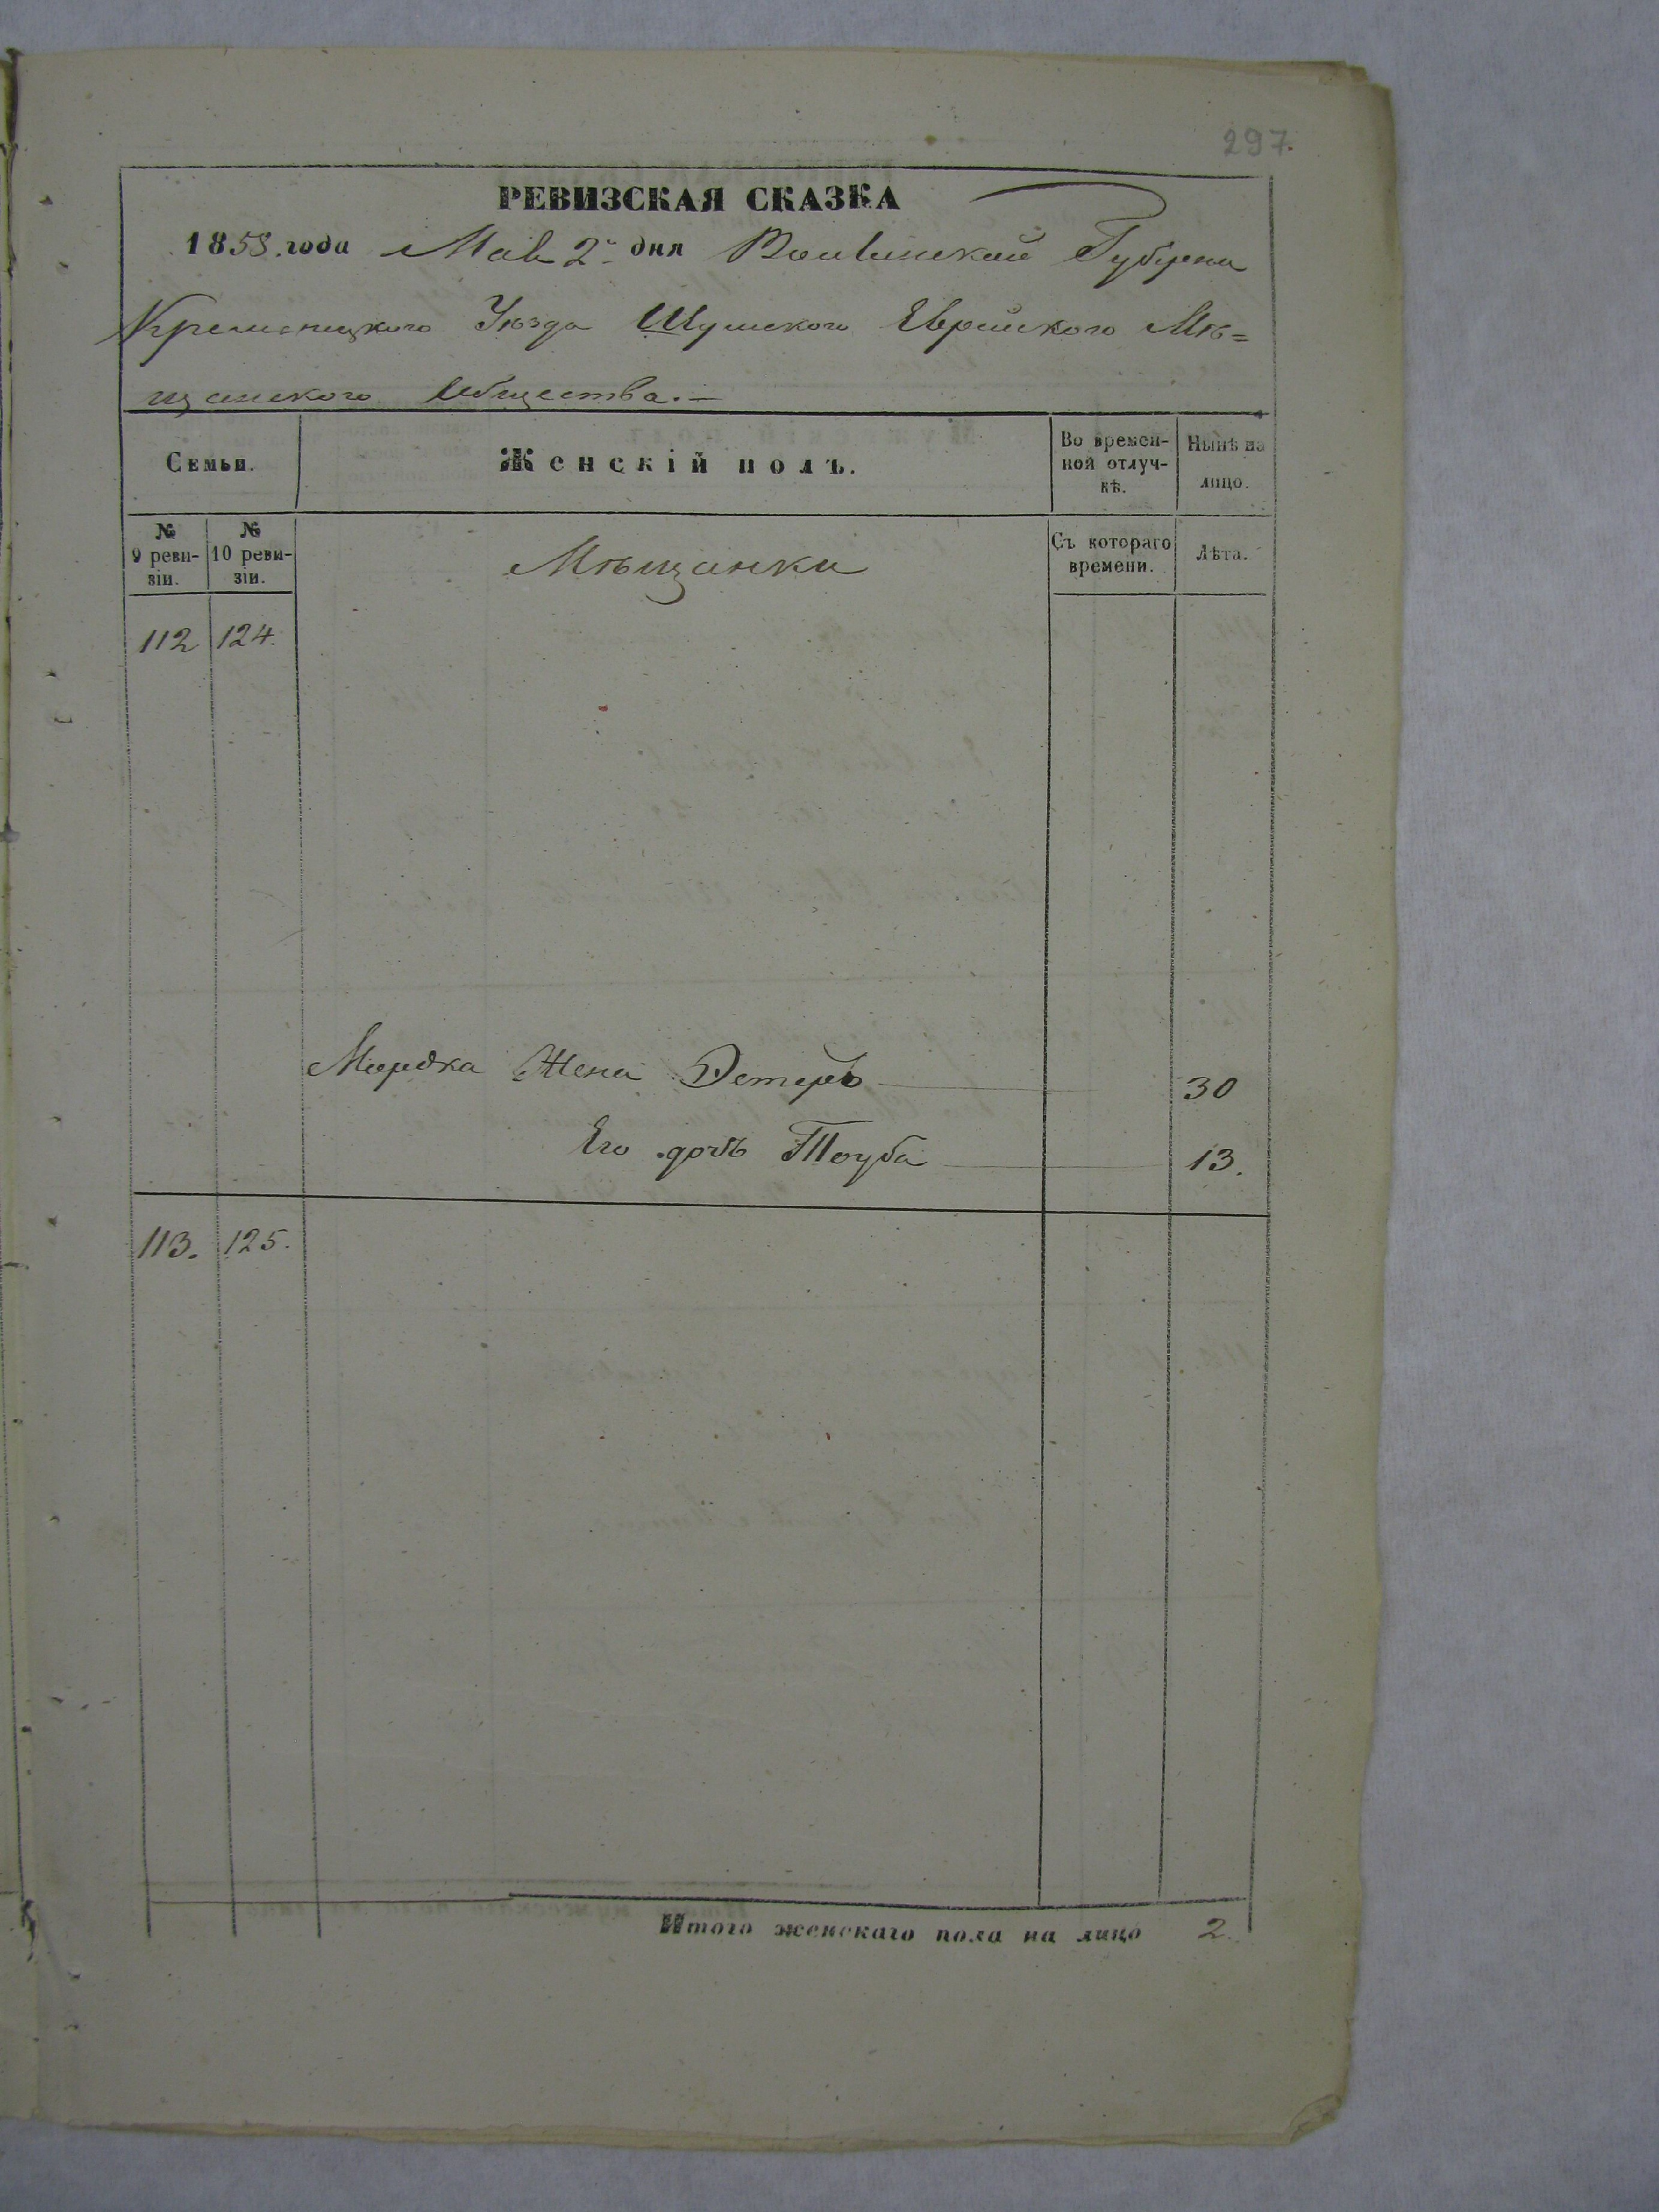 297.
РЕВИЗСКАЯ СКАЗКА
1858. года Мая 2го дня Волынской Губернии
Кременецкого Уѣзда Шумского Еврейского Мѣ=
щанского Общества.—
Семьи.
Женскій полъ.
Во времен-
ной отлуч-
кѣ.
Нынѣ на
лицо.
№
9 реви-
зіи.
№
10 реви-
зіи.
Мѣщанки
Съ котораго
времени.
Лѣта.
112 124.
Мордка Жена Эстеръ 30
Его дочь Тоуба 13.
113. 125.
Итого женскаго пола на лицо 2.